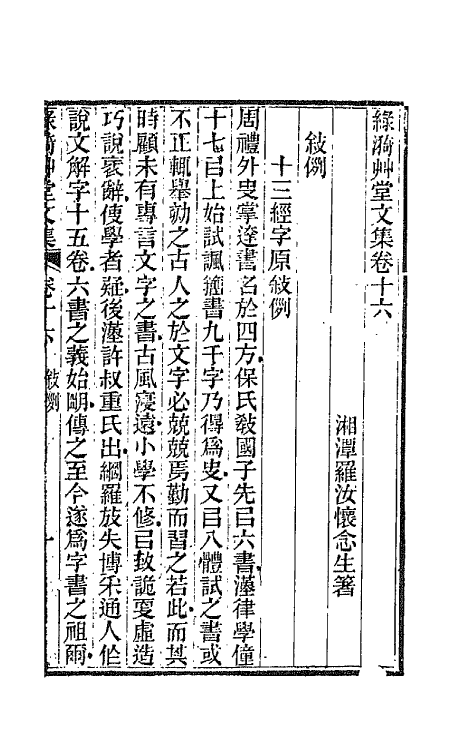 綠漪艸堂文集卷十六
湘潭羅汝懷念生箸
敘例
十三經字原敘例
周禮外史掌達書名於四方保氏敎國子先㠯六書漢律學僮
十七㠯上始試諷籒書九千字乃得爲史又㠯八體試之書或
不正輒舉劾之古人之於文字必兢兢焉勤而習之若此而其
時顧未有專言文字之書古風寖遠小學不修㠯致詭更虛造
巧說衺辭使學者疑後漢許叔重氏出綱羅放失博采通人作
說文解字十五卷六書之義始朙傳之至今遂爲字書之祖爾
綠漪艸堂文集 卷十六 敘例 一